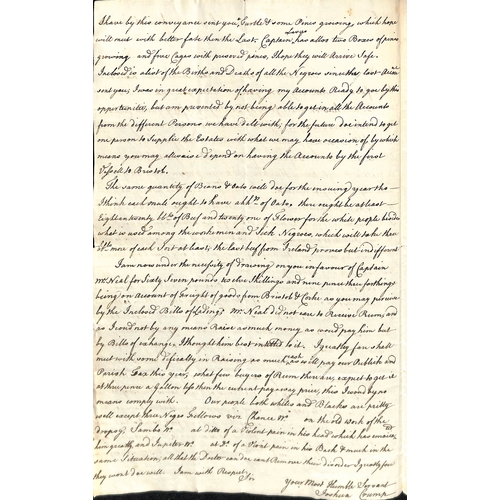 I have by this conveyance sent you, Turtle & some Pines growing, which hope
will meet with better fate then the Last. Captain Langs has allso two Boxes of pines
growing and five Cages with preserved pines, I hope they will Arrive Safe.
Inclosed is a list of the Births and Deaths of all the Negroes since the last
sent you, I was in great expectation of having my Accounts Ready to goe by this
opportunitee, but am prevented by not being able to get in all the Accounts
from the different Persons we have delt with, for the future I doe intend to get
one person to Supplie the Estates with what we may have occasion of, by which
means you may allwaise depend on having the Accounts by the first
Vessell to Bristol.
The same quantity of Beans & Oats will doe for the insuing year tho
I think each mill ought to have a hhd. of Oats. there ought be at least
Eight and twenty bbls. of Beef and twenty one of Flower for the white people besides
what is used among the workmen and Sick Negroes, which will take
bbls. more of each Sort at least, the last beef from Ireland proves but indifferent
I am now under the necessity of drawing on you in favour of Captain
McNeal for Sixty Seven pounds twelve Shillings and nine pence three farthings
being on Account of freight of goods from Bristol & Corke as you may perceive
by the Inclosed Bills of Lading, McNeal did not care to Receive Rum, and
as I could not by any means Raise as much money, as would pay him but
by Bills of exchange I thought him best intitled to it. I greatly fear I shall
meet with some dificulty in Raising as much cash as will pay our Publick and
Parish Tax this year, what few buyers of Rum there are, expect to get it
at three pence a gallon less then the current pay as way price, this I would by no
means comply with. Our people both whites and Blacks are pretty
well except three Negro Fellows viz Chance No. on the old work of the
dropsy, Sambo No. at ditto of a Violent pain in his head which has
him greatly and Jupeter No. at Do. of a Violent pain in his Back & much in the
same Situation, all that the Docter can doe cant Remove their disorder I greatly fear
they wont doe well. I am with Respect, Sir
Your Most Humble Servant
Joshua Crump